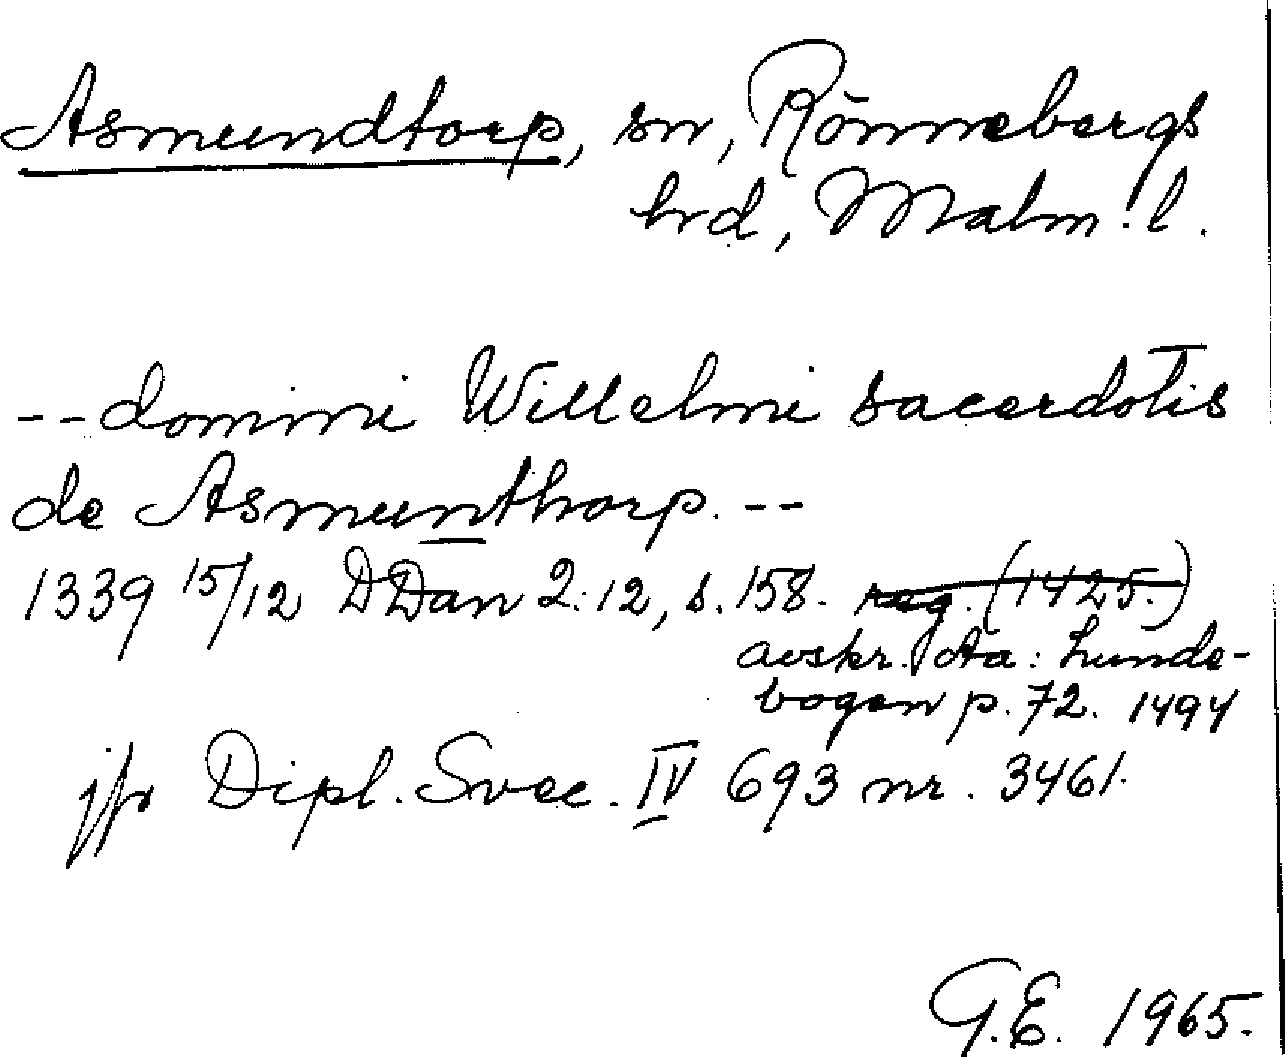 Asmundtorp, sn, Rönnebergs
hrd, Malm. l.
-- domini Willelmi sacerdotis
de Asmunthorp. --
1339 15/12 DDan 2:12, s. 158. reg. (1425.)
avskr. Aa: Lunde-
bogen p. 72. 1494
jfr Dipl. Svec. IV 693 nr. 3461.
G.E. 1965.